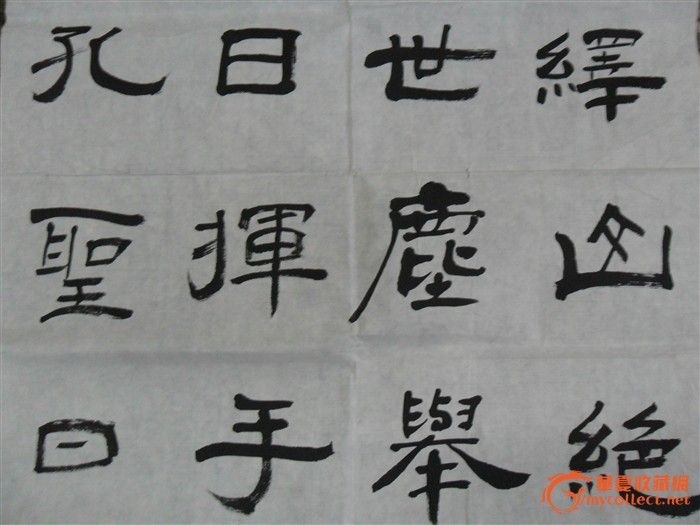 繹絕
世塵舉
日揮手
孔聖曰
華夏收藏網
mycollect.net